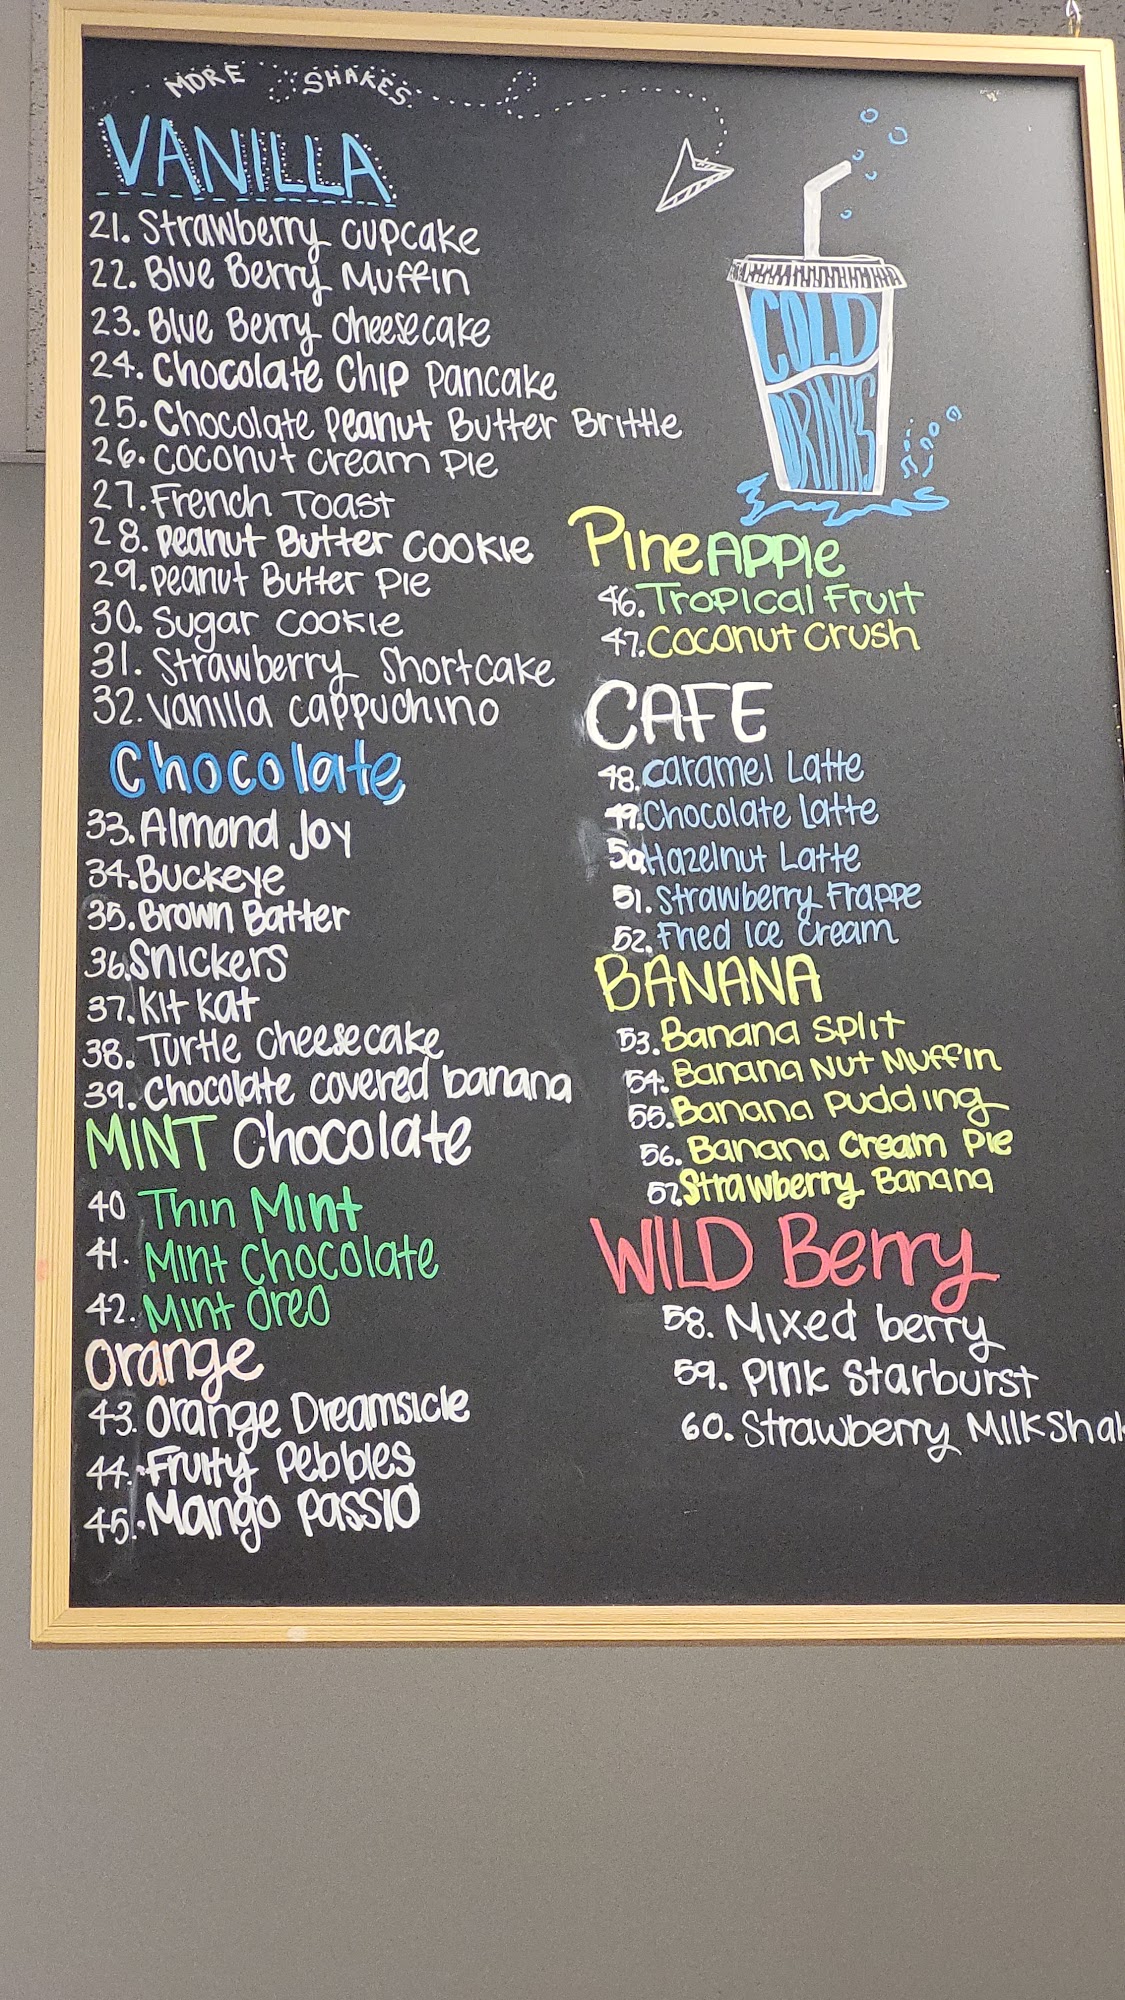 MORE SHAKES
VANILLA
21. Strawberry Cupcake
22. Blue Berry Muffin
23. Blue Berry Cheesecake
24. Chocolate Chip Pancake
25. Chocolate Peanut Butter Brittle
26. Coconut Cream Pie
27. French Toast
28. Peanut Butter Cookie
29. Peanut Butter Pie
30. Sugar Cookie
31. Strawberry Shortcake
32. Vanilla Cappuchino
Chocolate
33. Almond Joy
34. Buckeye
35. Brown Batter
36. Snickers
37. Kit Kat
38. Turtle Cheesecake
39. Chocolate covered banana
MINT Chocolate
40 Thin Mint
41. Mint Chocolate
42. Mint Oreo
Orange
43. Orange Dreamsicle
44. Fruity Pebbles
45. Mango Passio
COLD
DRINKS
PineAPPle
46. Tropical Fruit
47. Coconut Crush
CAFE
48. Caramel Latte
49. Chocolate Latte
50. Hazelnut Latte
51. Strawberry Frappe
52. Fried Ice Cream
BANANA
53. Banana Split
54. Banana Nut Muffin
55. Banana Pudding
56. Banana Cream Pie
57. Strawberry Banana
WILD Berry
58. Mixed berry
59. Pink Starburst
60. Strawberry MilkShak